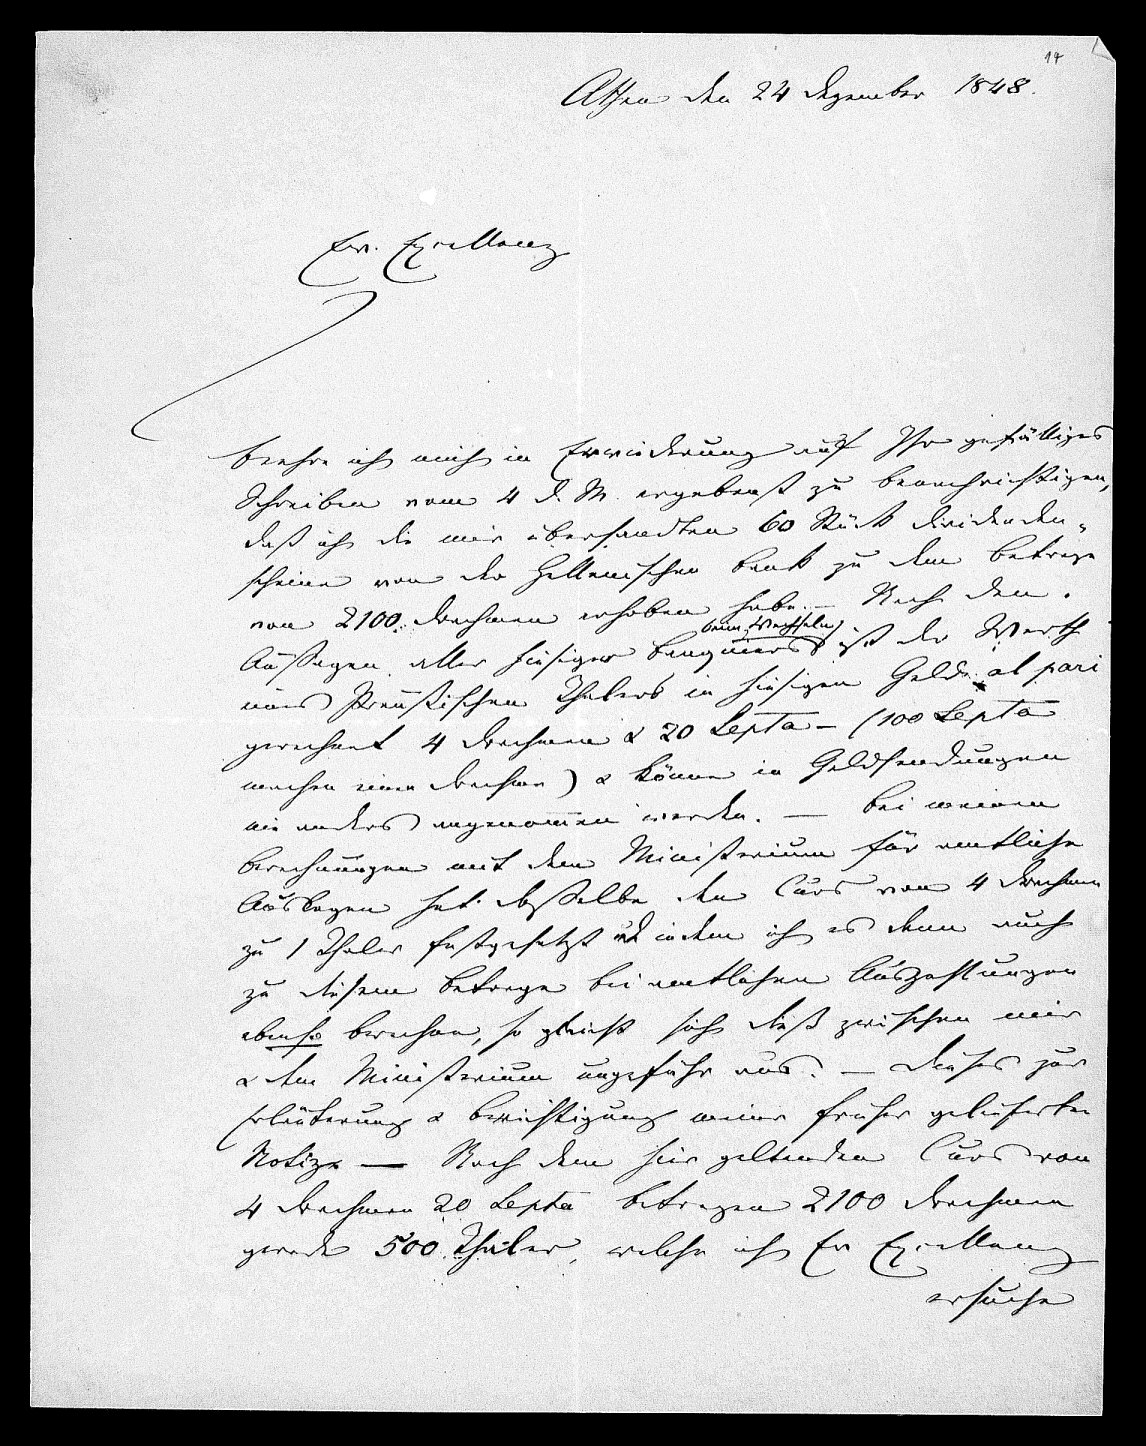 14
Athen den 24 Dezember 1848.
Ew. Excellenz
beehre ich mich in Erwiederung auf Ihr gefälliges
Schreiben vom 4 d. M. ergebenst zu benachrichtigen,
daß ich die mir übersandten 60 Stück Dividenden-
scheine von der Hellenischen Bank zu dem Betrage
von 2100. Drachmen erhoben habe. – Nach den
beim Wechseln
Aussagen aller hiesigen Banquiers ist der Werth
eines Preußischen Thalers in hiesigem Gelde al pari
gerechnet 4 Drachmen & 20 Lepta – (100 Lepta
machen eine Drachme) & könne in Geldsendungen
nie anders angenommen werden. – Bei meinen
Berechnungen mit dem Ministerium für amtliche
Auslagen hat dasselbe den Curs von 4 Drachmen
zu 1 Thaler festgesetzt und indem ich es denn auch
zu diesem Betrage bei amtlichen Auszahlungen
ebenso berechne, so gleicht sich dieß zwischen mir
& dem Ministerium ungefähr aus. – Dieses zur
Erläuterung & Berichtigung meiner früher gelieferten
Notiz. – Nach dem hier geltenden Curs von
4 Drachmen 20 Lepta betragen 2100 Drachmen
gerade 500 Thaler, welche ich Ew Excellenz
ersuche